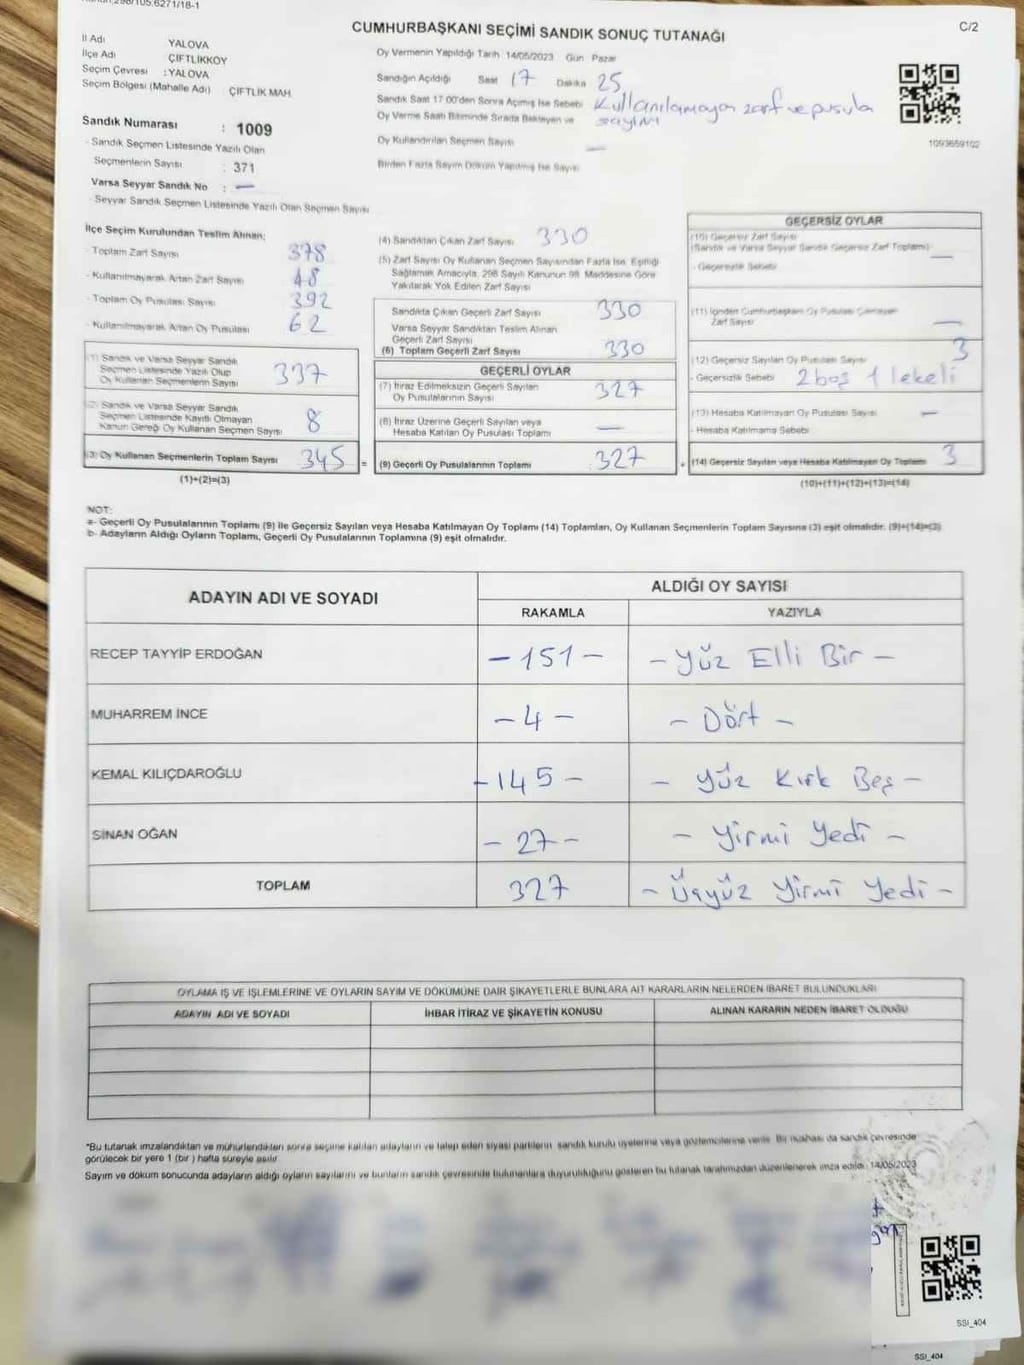 298/105.6271/18-1
C/2
CUMHURBAŞKANI SEÇİMİ SANDIK SONUÇ TUTANAĞI
İl Adı YALOVA
İlçe Adı ÇİFTLİKKÖY
Seçim Çevresi : YALOVA
Seçim Bölgesi (Mahalle Adı) ÇİFTLİK MAH.
Oy Vermenin Yapıldığı Tarih 14/05/2023 Gün Pazar
Sandığın Açıldığı Saat 17 Dakika 25
Sandık Saat 17.00'den Sonra Açılmış İse Sebebi Kullanılamayan zarf ve pusula sayımı
Oy Verme Saati Bitiminde Sırada Bekleyen ve
Oy Kullandırılan Seçmen Sayısı —
Birden Fazla Sayım Döküm Yapılmış İse Sayısı
1093659102
Sandık Numarası : 1009
- Sandık Seçmen Listesinde Yazılı Olan
Seçmenlerin Sayısı : 371
Varsa Seyyar Sandık No : —
- Seyyar Sandık Seçmen Listesinde Yazılı Olan Seçmen Sayısı
İlçe Seçim Kurulundan Teslim Alınan;
- Toplam Zarf Sayısı 378
- Kullanılmayarak Artan Zarf Sayısı 48
- Toplam Oy Pusulası Sayısı 392
- Kullanılmayarak Artan Oy Pusulası 62
(1) Sandık ve Varsa Seyyar Sandık
Seçmen Listesinde Yazılı Olup
Oy Kullanan Seçmenlerin Sayısı 337
(2) Sandık ve Varsa Seyyar Sandık
Seçmen Listesinde Kayıtlı Olmayan
Kanun Gereği Oy Kullanan Seçmen Sayısı 8
(3) Oy Kullanan Seçmenlerin Toplam Sayısı 345 =
(1)+(2)=(3)
(4) Sandıktan Çıkan Zarf Sayısı 330
(5) Zarf Sayısı Oy Kullanan Seçmen Sayısından Fazla İse, Eşitliği
Sağlamak Amacıyla, 298 Sayılı Kanunun 98. Maddesine Göre
Yakılarak Yok Edilen Zarf Sayısı
Sandıkta Çıkan Geçerli Zarf Sayısı 330
Varsa Seyyar Sandıktan Teslim Alınan
Geçerli Zarf Sayısı
(6) Toplam Geçerli Zarf Sayısı 330
GEÇERLİ OYLAR
(7) İtiraz Edilmeksizin Geçerli Sayılan
Oy Pusulalarının Sayısı 327
(8) İtiraz Üzerine Geçerli Sayılan veya
Hesaba Katılan Oy Pusulası Toplamı —
(9) Geçerli Oy Pusulalarının Toplamı 327 +
GEÇERSİZ OYLAR
(10) Geçersiz Zarf Sayısı
(Sandık ve Varsa Seyyar Sandık Geçersiz Zarf Toplamı) —
- Geçersizlik Sebebi
(11) İçinden Cumhurbaşkanı Oy Pusulası Çıkmayan
Zarf Sayısı —
(12) Geçersiz Sayılan Oy Pusulası Sayısı 3
- Geçersizlik Sebebi 2 boş 1 lekeli
(13) Hesaba Katılmayan Oy Pusulası Sayısı —
- Hesaba Katılmama Sebebi
(14) Geçersiz Sayılan veya Hesaba Katılmayan Oy Toplamı 3
(10)+(11)+(12)+(13)=(14)
NOT:
a- Geçerli Oy Pusulalarının Toplamı (9) ile Geçersiz Sayılan veya Hesaba Katılmayan Oy Toplamı (14) Toplamları, Oy Kullanan Seçmenlerin Toplam Sayısına (3) eşit olmalıdır. (9)+(14)=(3)
b- Adayların Aldığı Oyların Toplamı, Geçerli Oy Pusulalarının Toplamına (9) eşit olmalıdır.
ADAYIN ADI VE SOYADI ALDIĞI OY SAYISI
RAKAMLA YAZIYLA
RECEP TAYYİP ERDOĞAN – 151 – – Yüz Elli Bir –
MUHARREM İNCE – 4 – – Dört –
KEMAL KILIÇDAROĞLU – 145 – – Yüz Kırk Beş –
SİNAN OĞAN – 27 – – Yirmi Yedi –
TOPLAM 327 – Üçyüz Yirmi Yedi –
OYLAMA İŞ VE İŞLEMLERİNE VE OYLARIN SAYIM VE DÖKÜMÜNE DAİR ŞİKAYETLERLE BUNLARA AİT KARARLARIN NELERDEN İBARET BULUNDUKLARI
ADAYIN ADI VE SOYADI İHBAR İTİRAZ VE ŞİKAYETİN KONUSU ALINAN KARARIN NEDEN İBARET OLDUĞU
*Bu tutanak imzalandıktan ve mühürlendikten sonra seçime katılan adayların ve talep eden siyasi partilerin sandık kurulu üyelerine veya gözlemcilerine verilir. Bir nüshası da sandık çevresinde
görülecek bir yere 1 (bir) hafta süreyle asılır.
Sayım ve döküm sonucunda adayların aldığı oyların sayılarını ve bunların sandık çevresinde bulunanlara duyurulduğunu gösteren bu tutanak tarafımızdan düzenlenerek imza edildi. 14/05/2023
SSI_404
SSI_404